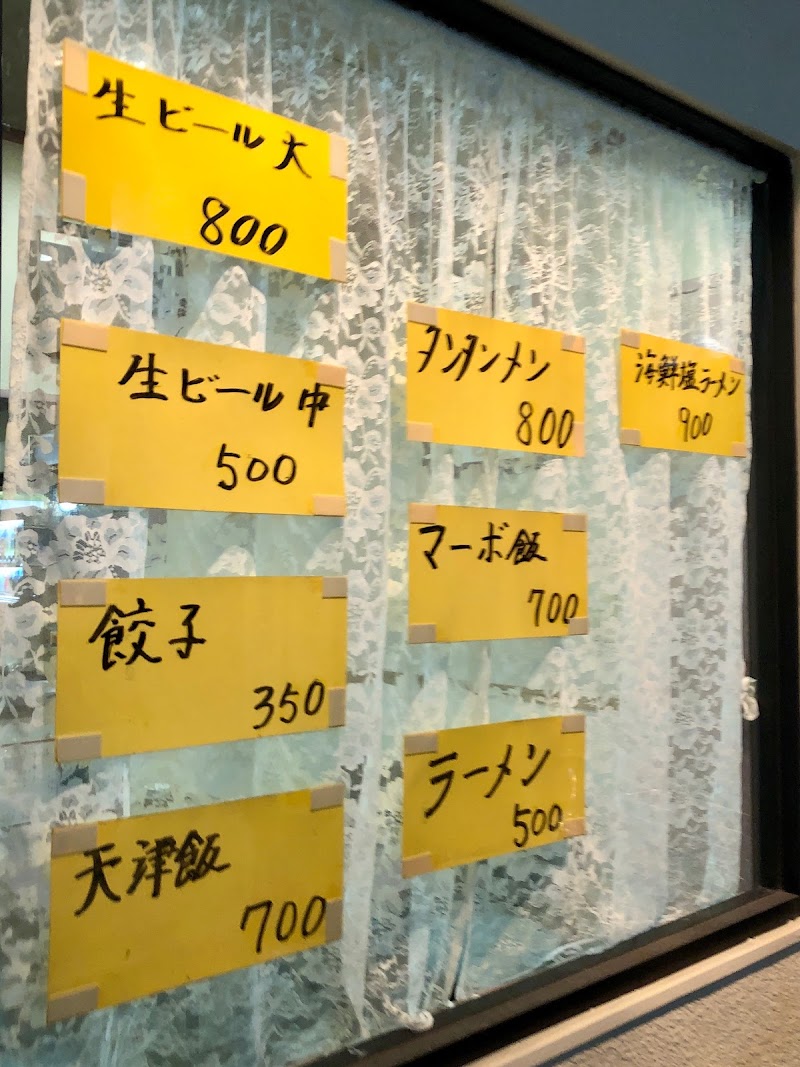 生ビール大
800
生ビール中
500
餃子
350
天津飯
700
タンタンメン
800
マーボ飯
700
ラーメン
500
海鮮塩ラーメン
900